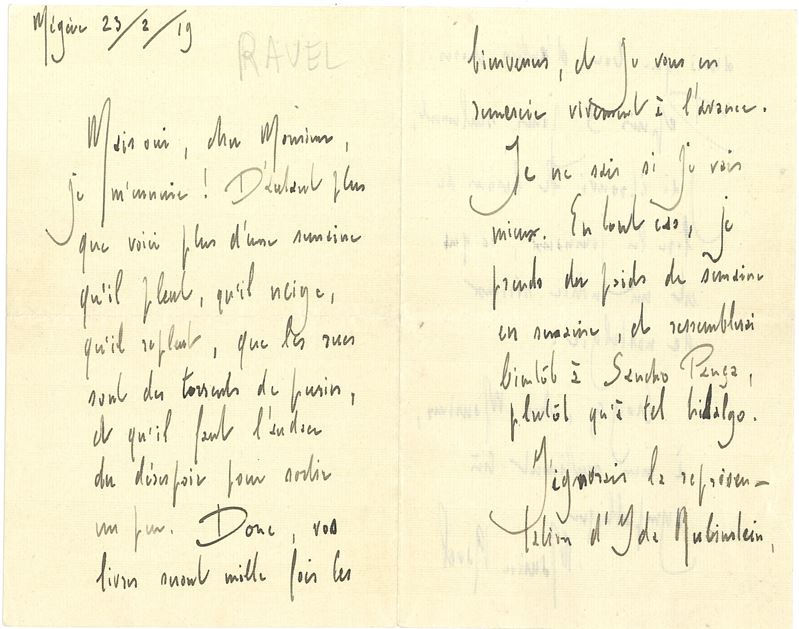 Mégève 23/2/19
RAVEL
Mais oui, cher Monsieur,
je m'ennuie ! D'autant plus
que voici plus d'une semaine
qu'il pleut, qu'il neige,
qu'il repleut, que les rues
sont des torrents de purin,
et qu'il faut l'audace
du désespoir pour sortir
un peu. Donc, vos
livres seront mille fois les
bienvenus, et je vous en
remercie vivement à l'avance.
Je ne sais si je vais
mieux. En tout cas, je
prends du poids de semaine
en semaine et ressemblerai
bientôt à Sancho Pança,
plutôt qu'à tel hidalgo.
J'ignorais la représen-
tation d'Ida Rubinstein,